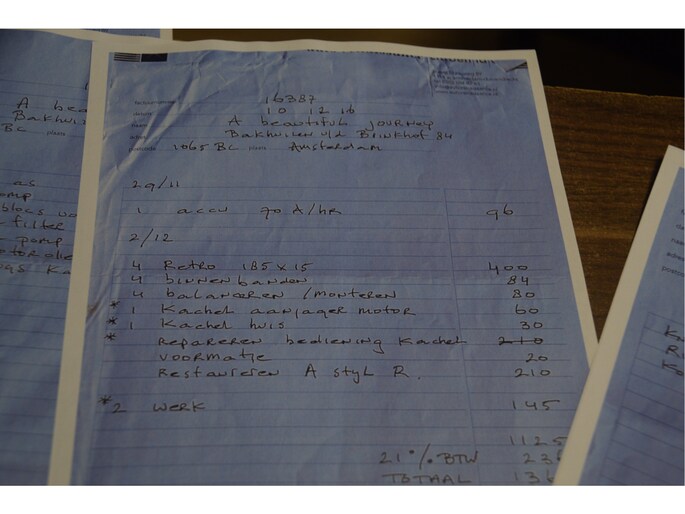 16387
10 12 16
A beautiful journey
Bakhuizen v/d Brinkhof 84
1065 BC plaats Amsterdam
29/11
1 accu 70 A/hr 96
2/12
4 Retro 185 x 15 400
4 binnenbanden 84
4 balanceren / monteren 80
* 1 Kachel aanjager motor 60
* 1 Kachel huis 30
* Repareren bediening Kachel 210
voormatje 20
Restaureren A styl R. 210
* 2 werk 145
1125
21 % BTW 236
TOTAAL 136
A bea
Bakhui
BC plaats
as
omp
blocs vo
filter
pomp
otorolie
ngs Ka
Ka
R
Ko